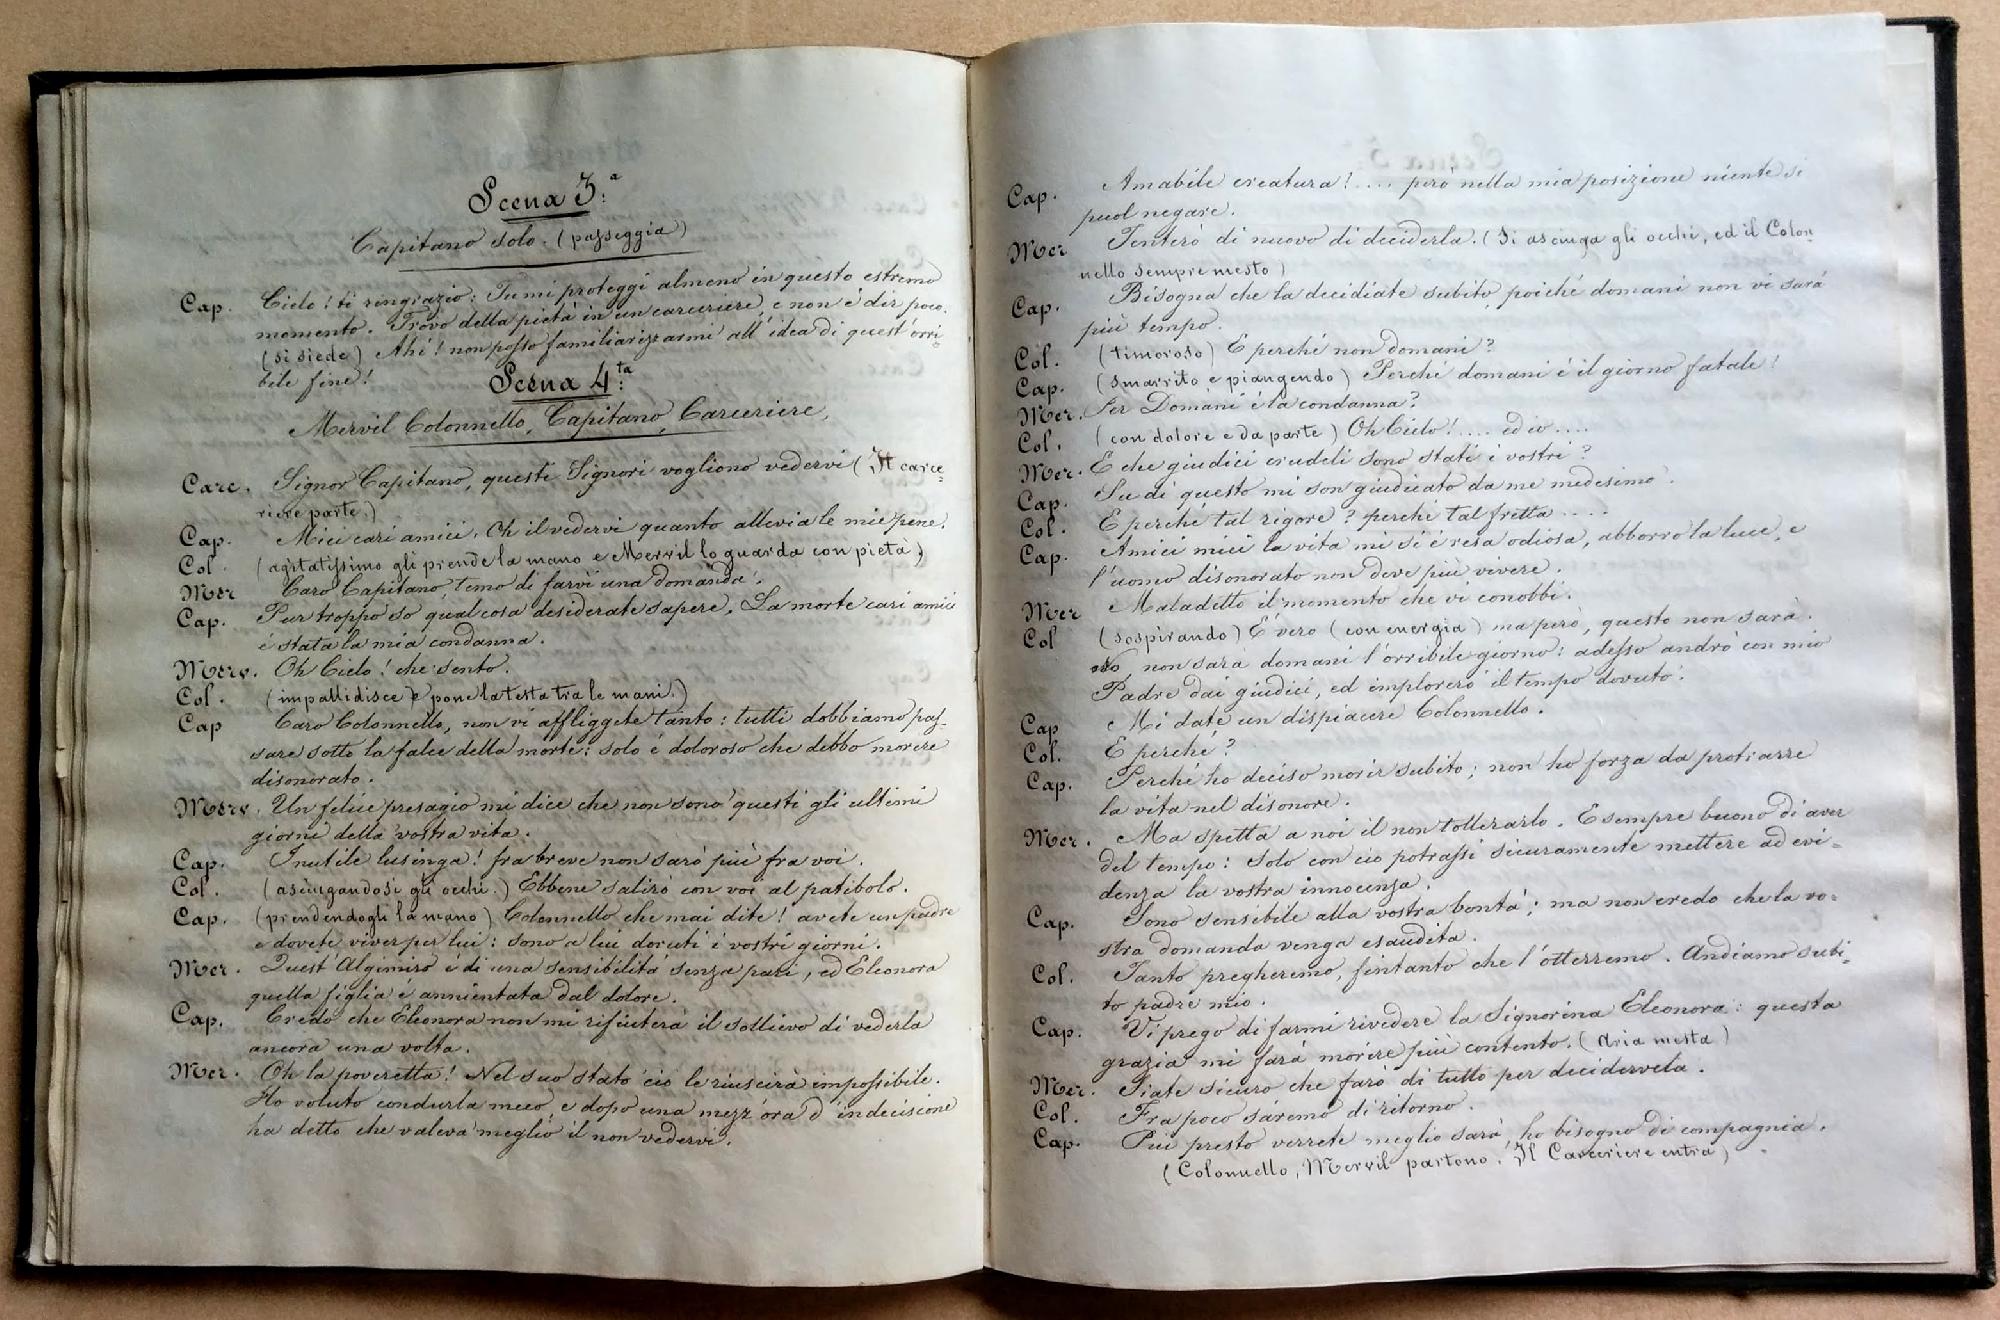 Scena 3.ª
Capitano solo. (passeggia)
Cap. Cielo! ti ringrazio: Tu mi proteggi almeno in questo estremo
momento. Trovo della pietà in un carceriere, e non è dir poco.
(si siede) Ahi! non posso familiarizzarmi all'idea di quest'orri-
bile fine!
Scena 4.ta
Mervil Colonnello, Capitano, Carceriere,
Carc. Signor Capitano, questi Signori vogliono vedervi (Il carce-
riere parte.)
Cap. Miei cari amici. Oh il vedervi quanto allevia le mie pene.
Col. (agitatissimo gli prende la mano e Mervil lo guarda con pietà)
Mer Caro Capitano, temo di farvi una domanda.
Cap. Pur troppo so qual cosa desiderate sapere. La morte cari amici
è stata la mia condanna.
Merv. Oh Cielo! che sento.
Col. (impallidisce e pone la testa tra le mani.)
Cap Caro Colonnello, non vi affliggete tanto: tutti dobbiamo pas-
sare sotto la falce della morte: solo è doloroso che debbo morire
disonorato.
Merv. Un felice presagio mi dice che non sono questi gli ultimi
giorni della vostra vita.
Cap. Inutile lusinga! fra breve non sarò più fra voi.
Col. (asciugandosi gli occhi.) Ebbene salirò con voi al patibolo.
Cap. (prendendogli la mano) Colonnello che mai dite! avete un padre
e dovete viver per lui: sono a lui dovuti i vostri giorni.
Mer. Quest'Algimiro è di una sensibilità senza pari, ed Eleonora
quella figlia è annientata dal dolore.
Cap. Credo che Eleonora non mi rifiuterà il sollievo di vederla
ancora una volta.
Mer. Oh la poveretta! Nel suo stato ciò le riuscirà impossibile.
Ho voluto condurla meco, e dopo una mezz'ora d'indecisione
ha detto che valeva meglio il non vedervi.
Cap. Amabile creatura! .... però nella mia posizione niente si
puol negare.
Mer Tenterò di nuovo di deciderla. (Si asciuga gli occhi, ed il Colon-
nello sempre mesto)
Cap. Bisogna che la decidiate subito, poiché domani non vi sarà
più tempo.
Col. (timoroso) E perché non domani?
Cap. (smarrito e piangendo) Perché domani è il giorno fatale!
Mer. Per Domani è la condanna?
Col. (con dolore e da parte) Oh Cielo! .... ed io ....
Mer. E che giudici crudeli sono stati i vostri?
Cap. Su di questo mi son giudicato da me medesimo.
Col. E perché tal rigore? perché tal fretta ....
Cap. Amici miei la vita mi si è resa odiosa, abborro la luce, e
l'uomo disonorato non deve più vivere.
Mer Maladetto il momento che vi conobbi.
Col (sospirando) È vero (con energia) ma però, questo non sarà.
No non sarà domani l'orribile giorno: adesso andrò con mio
Padre dai giudici, ed implorerò il tempo dovuto.
Cap Mi date un dispiacere Colonnello.
Col. E perché?
Cap. Perché ho deciso morir subito; non ho forza da protrarre
la vita nel disonore.
Mer. Ma spetta a noi il non tollerarlo. E sempre buono di aver
del tempo: solo con ciò potrassi sicuramente mettere ad evi-
denza la vostra innocenza.
Cap. Sono sensibile alla vostra bontà; ma non credo che la vo-
stra domanda venga esaudita.
Col. Tanto pregheremo, fintanto che l'otterremo. Andiamo subi-
to padre mio.
Cap. Vi prego di farmi rivedere la Signorina Eleonora: questa
grazia mi farà morire più contento. (aria mesta)
Mer. Siate sicuro che farò di tutto per decidervela.
Col. Fra poco saremo di ritorno.
Cap. Più presto verrete meglio sarà, ho bisogno di compagnia.
(Colonnello, Mervil partono. Il Carceriere entra)